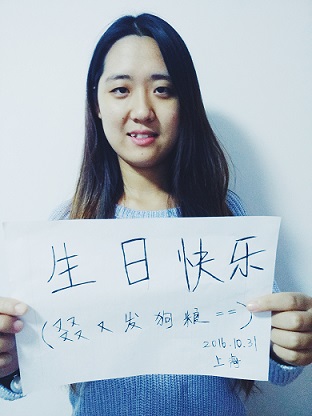 生日快乐
(叕又发狗粮==)
2016.10.31
上海